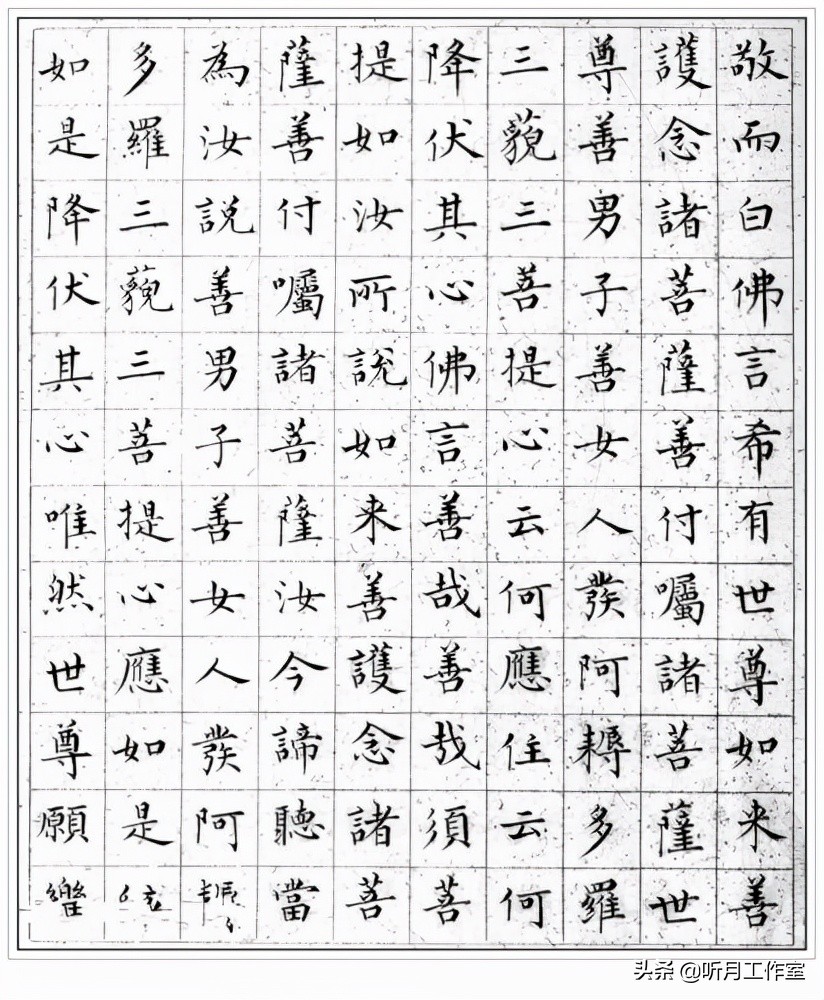 敬而白佛言希有世尊如来善
護念諸菩薩善付囑諸菩薩世
尊善男子善女人發阿耨多羅
三藐三菩提心云何應住云何
降伏其心佛言善哉善哉須菩
提如汝所說如来善護念諸菩
薩善付囑諸菩薩汝今諦聽當
為汝說善男子善女人發阿
多羅三藐三菩提心應如是
如是降伏其心唯然世尊願
头条 @听月工作室